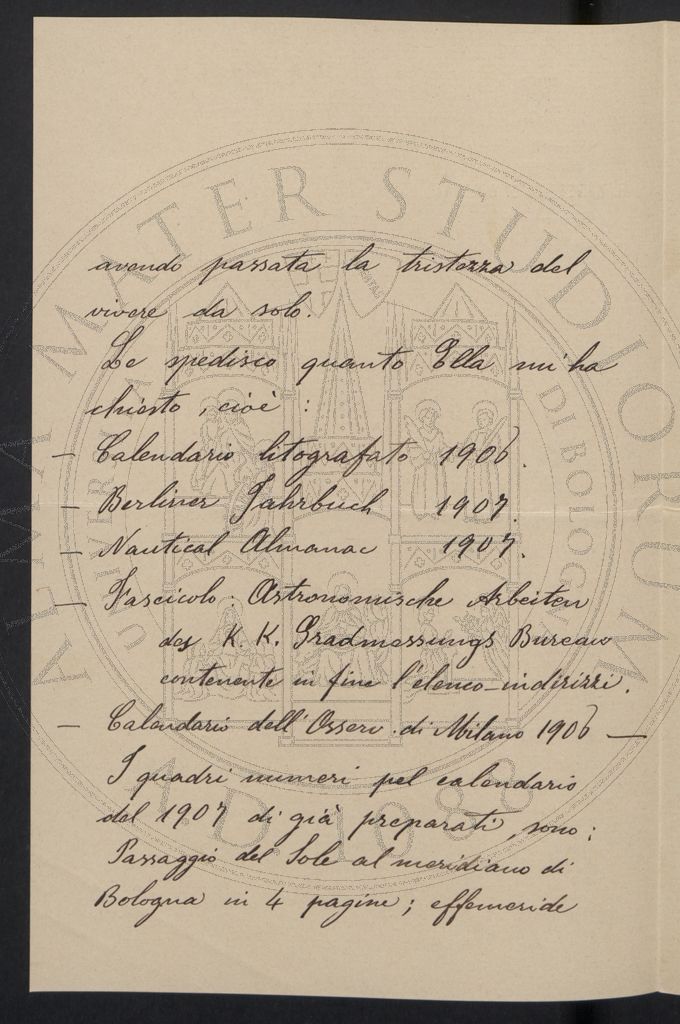 avendo passata la tristezza del
vivere da solo.
Le spedisco quanto Ella mi ha
chiesto, cioè :
— Calendario litografato 1906.
— Berliner Jahrbuch 1907.
— Nautical Almanac 1907.
— Fascicolo: Astronomische Arbeiten
des K. K. Gradmessungs Bureau
contenente in fine l'elenco-indirizzi.
— Calendario dell'Osserv. di Milano 1906 —
I quadri numeri pel calendario
del 1907 di già preparati, sono:
Passaggio del Sole al meridiano di
Bologna in 4 pagine; effemeride
ALMA MATER STUDIORUM
A.D. 1088